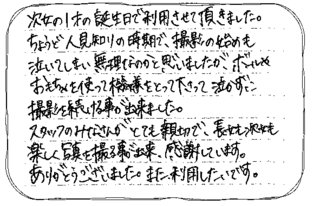 次女の1才の誕生日で利用させて頂きました。
ちょうど人見知りの時期で、撮影の始めも
泣いてしまい無理なのかと思いましたが、ボールや
おもちゃを使って機嫌をとって下さって泣かずに
撮影を続ける事が出来ました。
スタッフのみなさんがとても親切で、長女も次女も
楽しく写真を撮る事が出来、感謝しています。
ありがとうございました。また利用したいです。